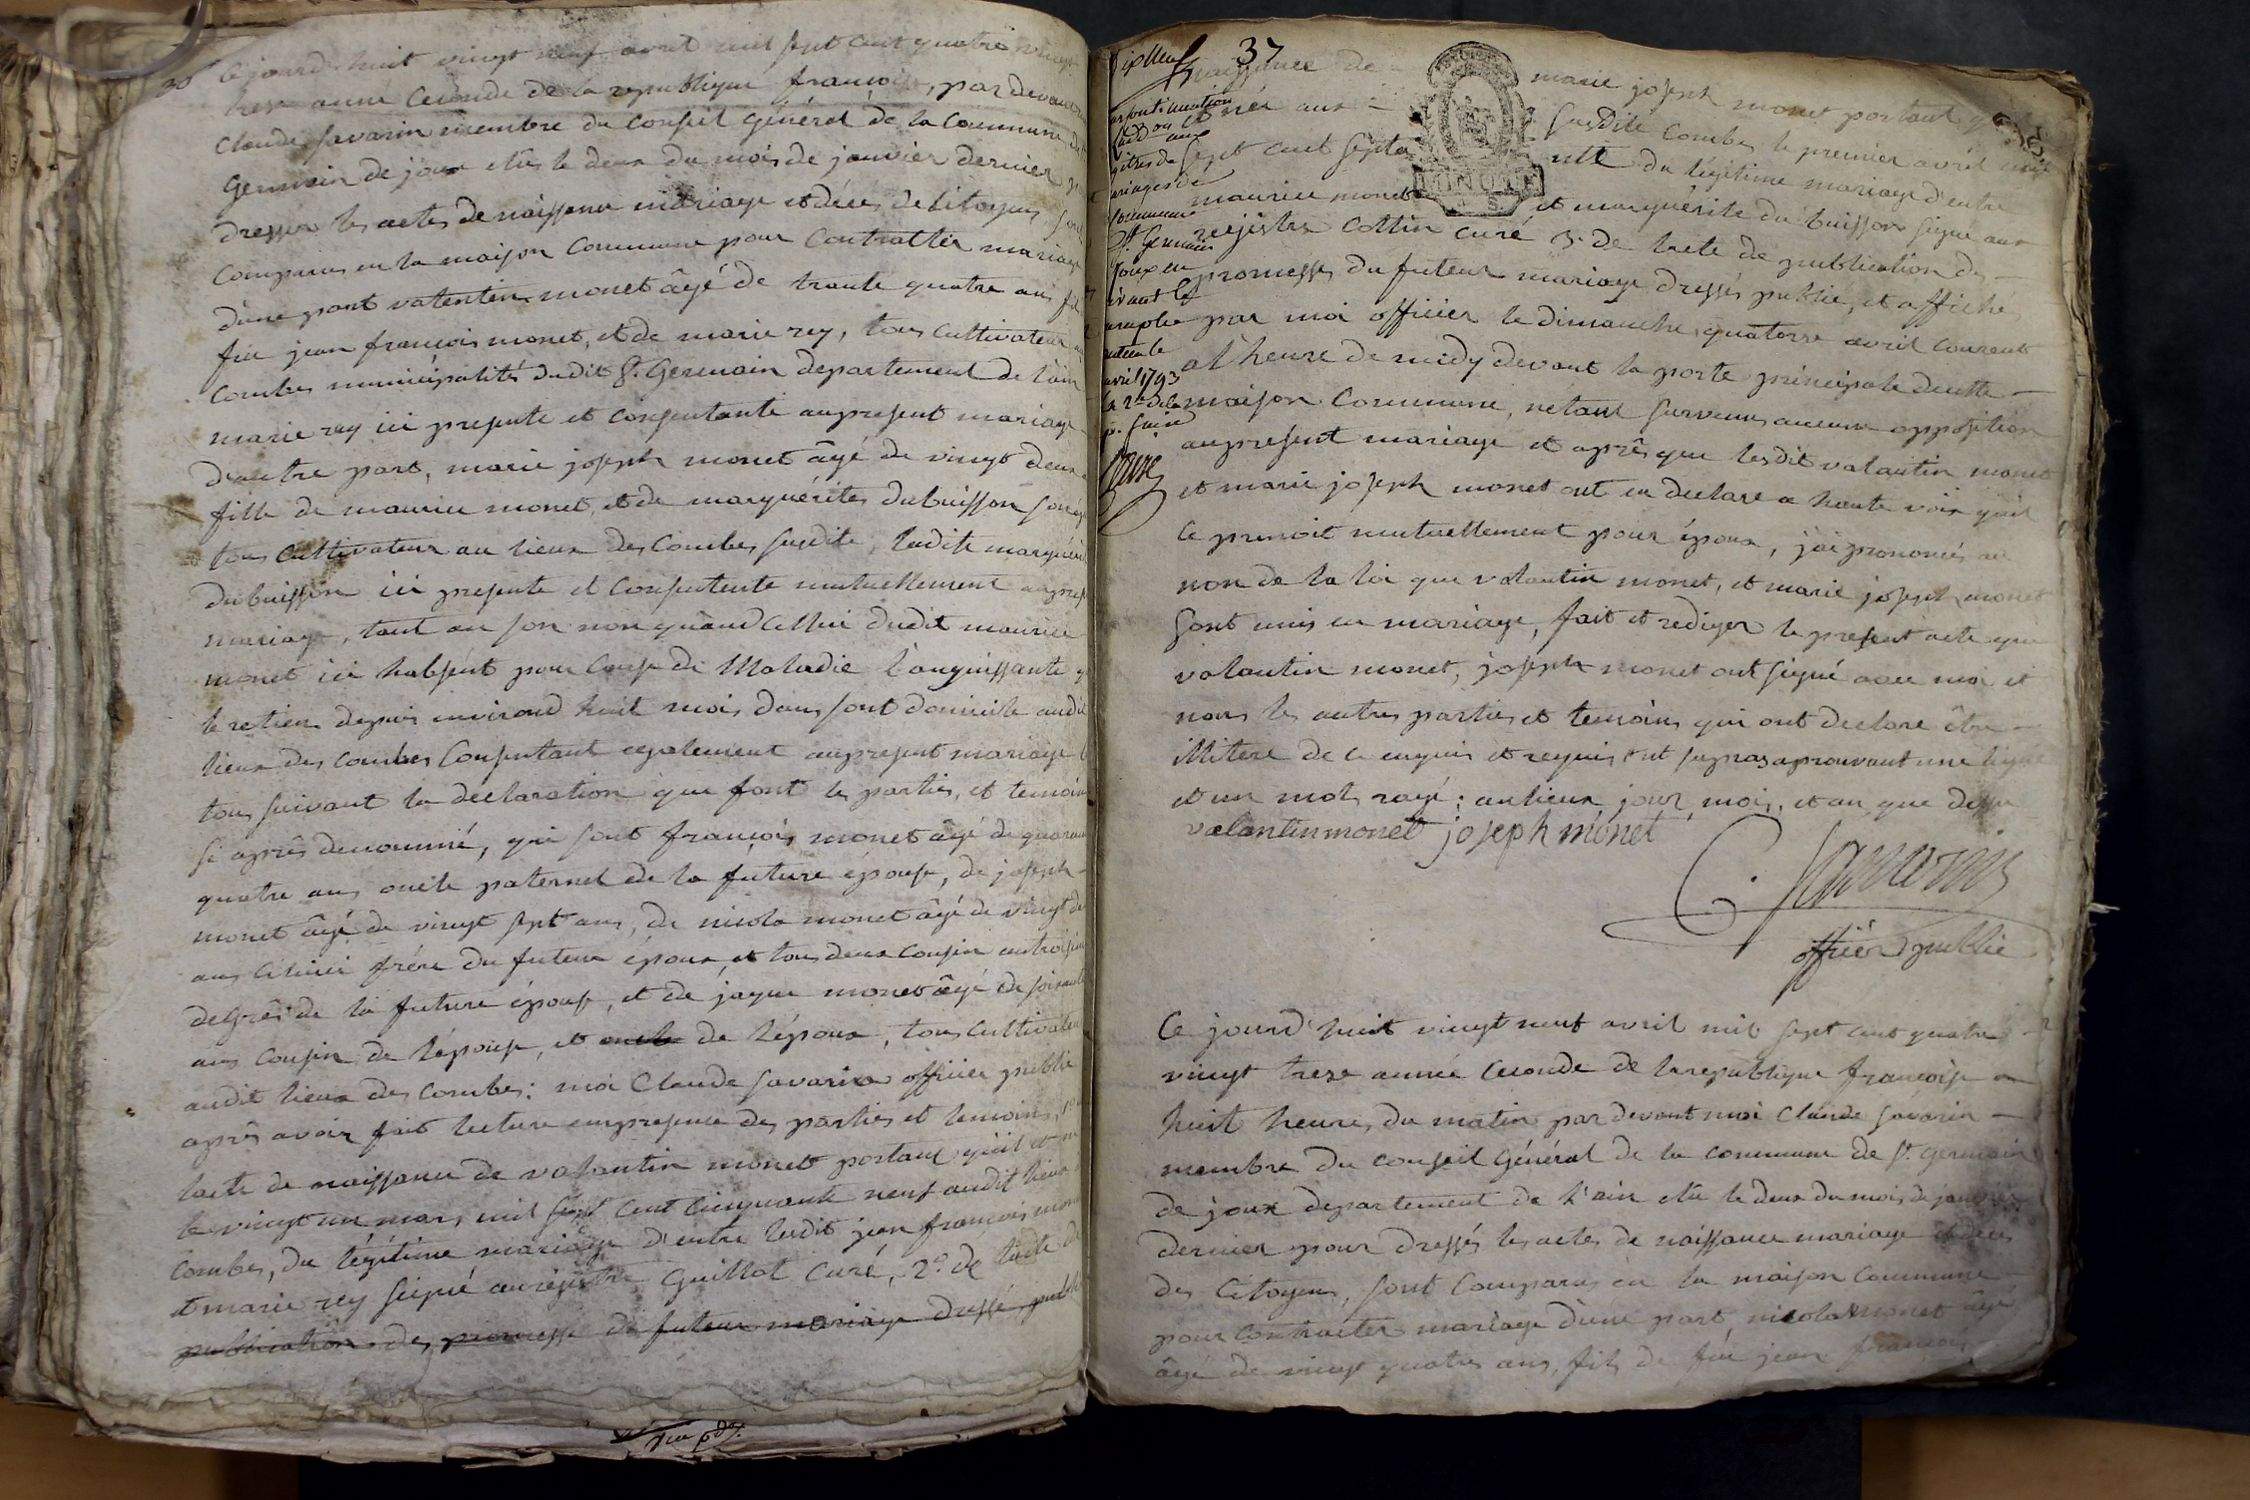 30
Ce jourdhuit vingt neuf avril mil sept cent quatre vingt
treze anne ceconde de la republique françoise, par devant
Claude Savarin membre du Conseil Général de la Commune de
Germain de joux elûs le deux du mois de janvier dernier
dresser les actes de naissance mariage et déces de Citoyens sont
Comparus en la maison Commune pour Contratter mariage
d'une part valentin monet âgé de trante quatre ans
feu jean françois monet, et de marie rey, tous cultivateur
Combes municipalité dudit St. Germain departement de l'ain
marie rey ici presente et consentante aupresent mariage
d'autre part, marie joseph monet âgé de vingt deux
fille de maurice monet, et de marguérites dubuisson
tous Cultivateur au lieux des Combes susdite, ladite marguérite
dubuisson ici presente et Consentente mutuellement
mariage, tant an son non quand Cellui dudit maurice
monet ici habsent pour Cause de Maladie languissante
le retien depuis environd huit mois dans sont domicile audit
lieux des Combes Consentant egalement aupresent mariage
tous suivant la declaration que font les parties, et temoins
si après denommé, qui sont françois monet âgé de quarante
quatre ans oncle paternel de la future épouse, de joseph
monet âgé de vingt sept ans, de nicola monet âgé de vingt
ans frére du futeur épour, et tous deux cousin
degrès de la future épouse, et de jaque monet âgé de soixante
ans cousin de l'épouse, et oncle de l'épour, tous Cultivateur
audit lieux des Combes: moi Claude Savarin officier public
après avoir fait lecture empresence des parties et temoins, 1°
lacte de naissance de valantin monet portant qu'il et
le vingt un mars mil sept cent cinquante neuf audit lieux
Combes, du légitime mariage d'entre ledit jean françois monet
et marie rey signé au régistre Guillot Curé, 2° de lacte de
publication des promesse de futeur mariage dressé publié
37
naissance de marie joseph monet portant
née aux susdite Combes le premier avril mil
sept cent septante du légitime mariage d'entre
maurice monet et marguérite du buisson signé aux
regîstres Cottin curé 3° de lacte de publication de
promesses du futeur mariage dressés publié, et affiché
par moi officier le dimanche quatorse avril courent
al'heure de midy devant la porte principale de cette
maison Commune, n'etant survenus aucune opposition
aupresent mariage et après que lesdit valantin monet
et marie joseph monet ont eu declare a haute voix quil
Ce prenoit mutuellement pour épour, j'ai prononcés au
non de la loi que valantin monet, et marie joseph monet
sont unis en mariage, fait et rediger le present acte que
valantin monet, joseph monet ont signé avec moi et
nons les autres parties et temoins qui ont declare être
illitere de ce enquis et requis aprouvant une ligne
et un mot rayé; aulieux, jour, mois, et an que dessu
valantin monet joseph monet
C. Savarin
officier public
St. Germain
avril 1793
Ce jourd'huit vingt neuf avril mil sept cent quatre
vingt treze année ceconde de la republique françoise
huit heures du matin par devant moi Claude Savarin
membre du conseil Général de la commune de St. Germain
de joux departement de l'ain elû le deux du mois de janvier
dernier pour dressés les actes de naissance mariage et deces
des Citoyens, sont Comparus en la maison Commune
pour Contracter mariage d'une part nicola monet âgé
âgé de vingt quatre ans, fils de feu jean françois